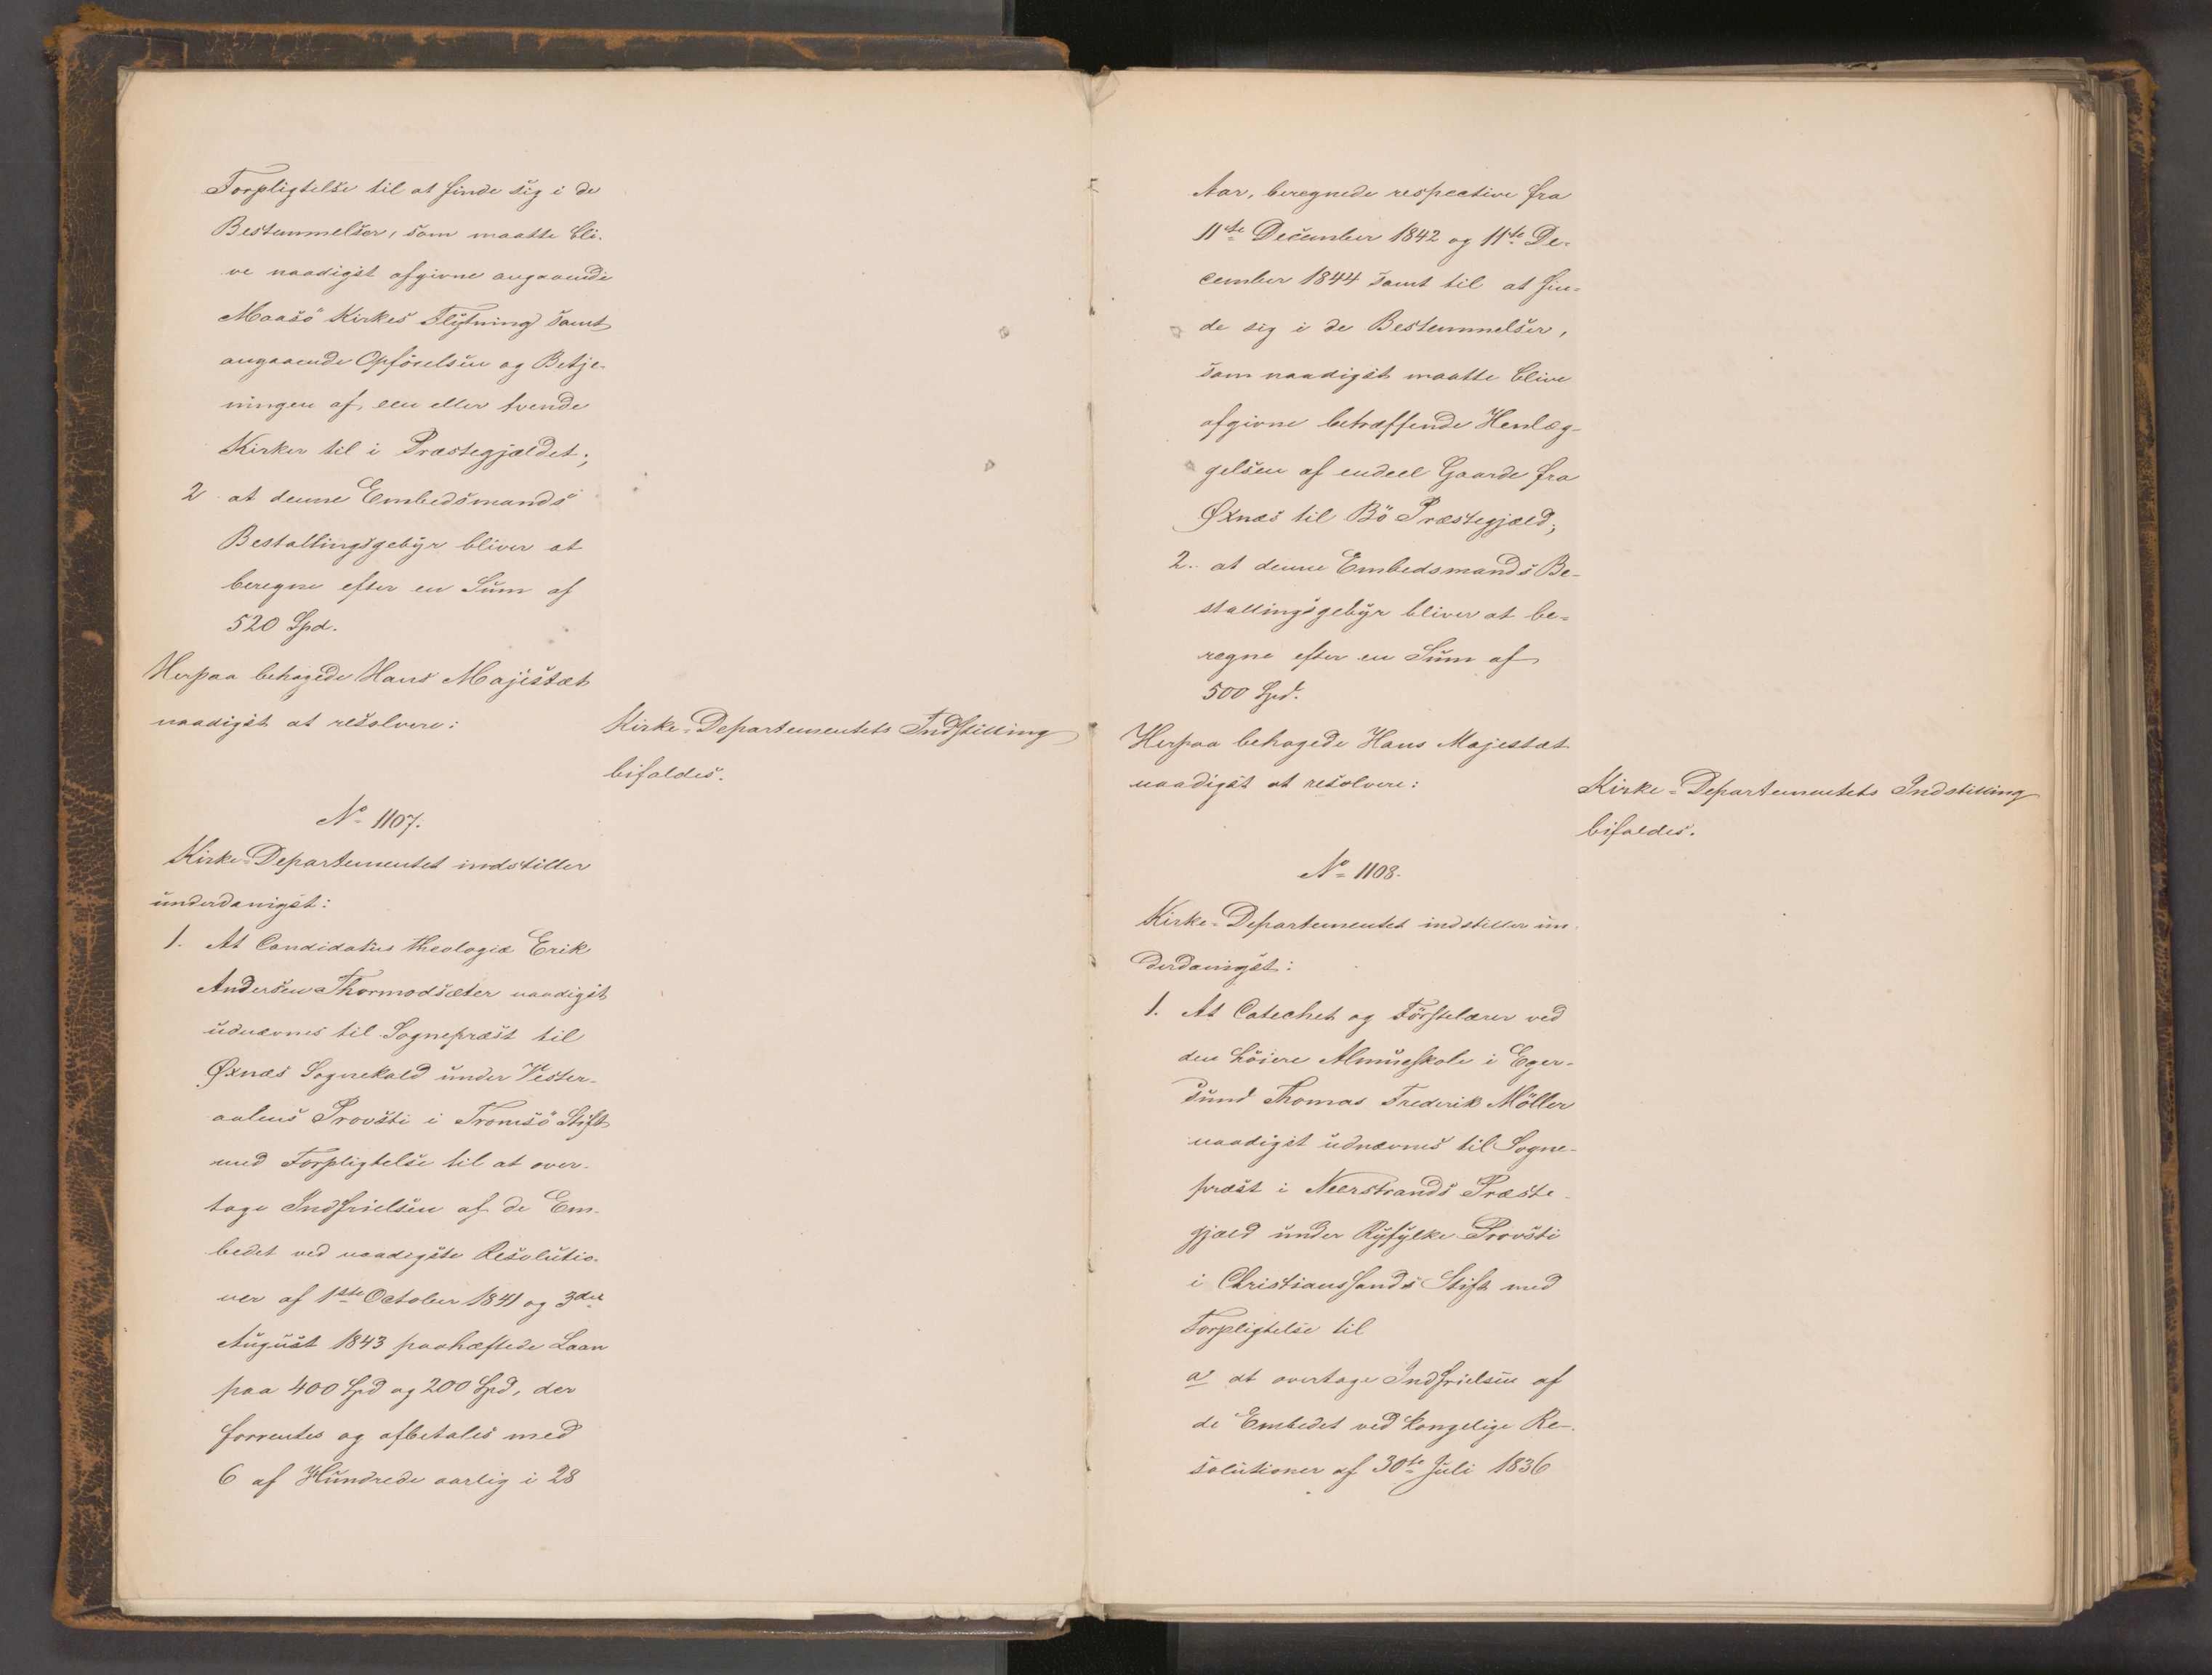 Forpligtelse til at finde sig i de
Bestemmelser, som maatte bli-
ve naadigst afgivne angaaende
Maasö Kirkes Flytning samt
angaaende Opförelsen og Betje-
ningen af een eller tvende
Kirker til i Præstegjældet;
2 at denne Embedsmands
Bestallingsgebyr bliver at
beregne efter en Sum af
520 Spd.
Herpaa behagede Hans Majestæt
naadigst at resolvere:
Kirke-Departementets Indstilling
bifaldes.
No 1107.
Kirke-Departementet indstiller
underdanigst:
1. At Candidatus theologiæ Erik
Andersen Thormodsæter naadigst
udnævnes til Sognepræst til
Øxnæs Sognekald under Vester-
aalens Provsti i Tromsö Stift
med Forpligtelse til at over-
tage Indfrielsen af de Em-
bedet ved naadigste Resolutio-
ner af 1ste October 1841 og 3die
August 1843 paahæftede Laan
paa 400 Spd og 200 Spd, der
forrentes og afbetales med
6 af Hundrede aarlig i 28
Aar, beregnede respective fra
11te December 1842 og 11te De-
cember 1844 samt til at fin-
de sig i de Bestemmelser,
som naadigst maatte blive
afgivne betræffende Henlæg-
gelsen af endeel Gaarde fra
Øxnæs til Bö Præstegjæld;
2. at denne Embedsmands Be-
stallingsgebyr bliver at be-
regne efter en Sum af
500 Spd.
Herpaa behagede Hans Majestæt
naadigst at resolvere:
Kirke-Departementets Indstilling
bifaldes.
No 1108.
Kirke-Departementet indstiller un-
derdanigst:
1. At Catechet og Förstelærer ved
den höiere Almueskole i Eger-
sund Thomas Frederik Möller
naadigst udnævnes til Sogne-
præst i Neerstrands Præste-
gjæld under Ryfylke Provsti
i Christianssands Stift med
Forpligtelse til
a at overtage Indfrielsen af
de Embedet ved kongelige Re-
solutioner af 30te Juli 1836